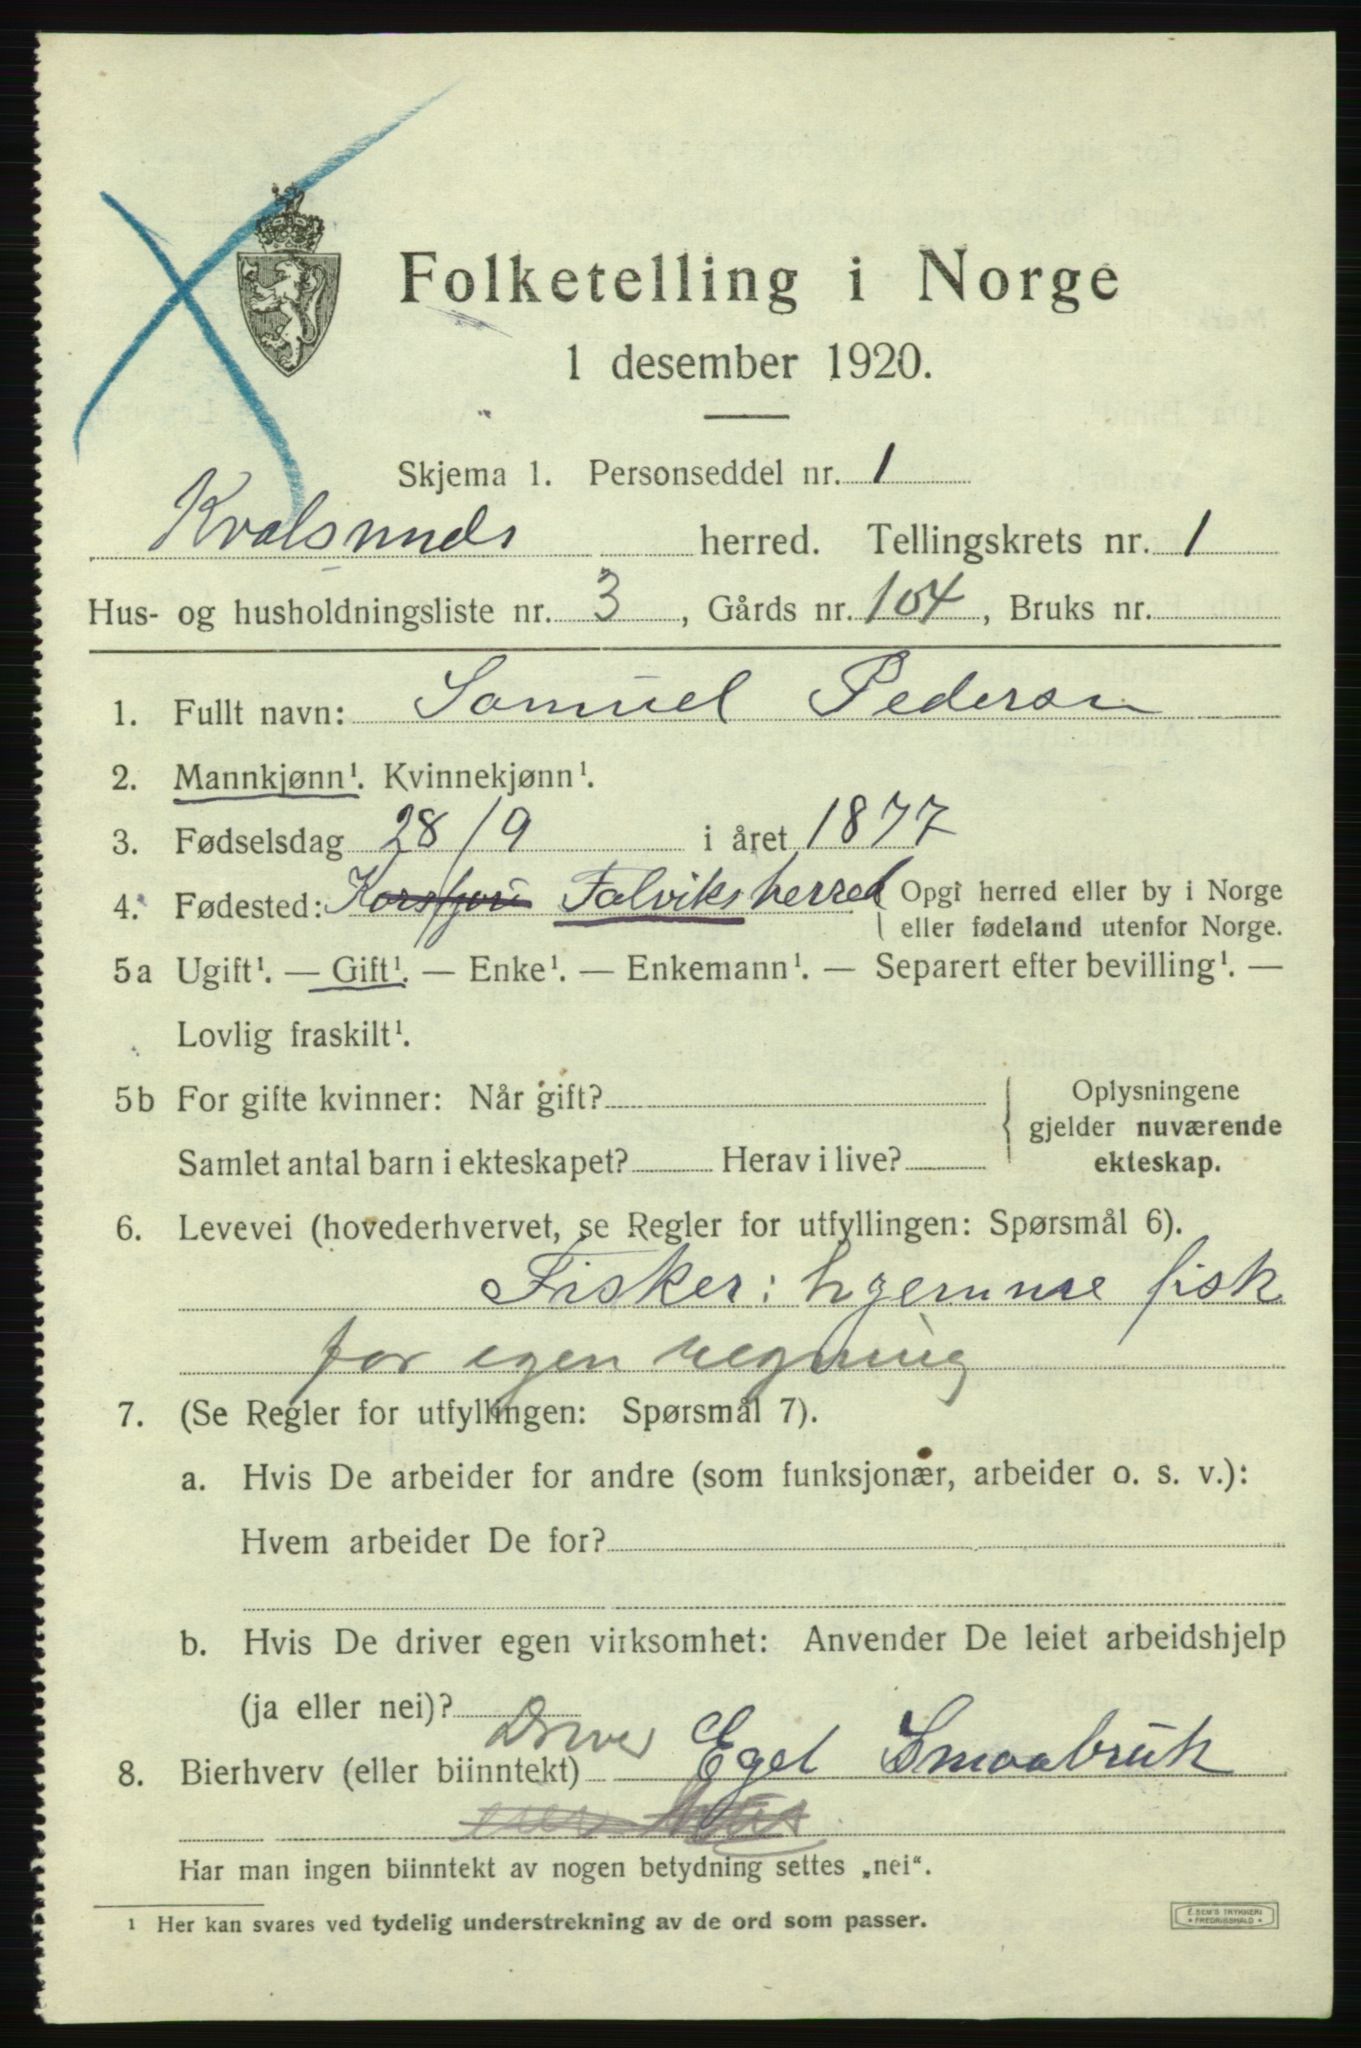 Folketelling i Norge
1 desember 1920.
Skjema 1. Personseddel nr. 1
Kvalsunds herred. Tellingskrets nr. 1
Hus- og husholdningsliste nr. 3, Gårds nr. 104, Bruks nr.
1. Fullt navn: Samuel Pedersen
2. Mannkjønn¹. Kvinnekjønn¹.
3. Fødselsdag 28/9 i året 1877
4. Fødested: Korsfjord Talviks herred Opgi herred eller by i Norge
eller fødeland utenfor Norge.
5a Ugift¹. — Gift¹. — Enke¹. — Enkemann¹. — Separert efter bevilling¹. —
Lovlig fraskilt¹.
5b For gifte kvinner: Når gift?
Samlet antal barn i ekteskapet? Herav i live?
Oplysningene
gjelder nuværende
ekteskap.
6. Levevei (hovederhvervet, se Regler for utfyllingen: Spørsmål 6).
Fisker: hjemme fisk
for egen regning
7. (Se Regler for utfyllingen: Spørsmål 7).
a. Hvis De arbeider for andre (som funksjonær, arbeider o. s. v.):
Hvem arbeider De for?
b. Hvis De driver egen virksomhet: Anvender De leiet arbeidshjelp
(ja eller nei)?
8. Bierhverv (eller biinntekt) Driver Eget Smaabruk
Har man ingen biinntekt av nogen betydning settes „nei“.
¹ Her kan svares ved tydelig understrekning av de ord som passer.
E. SEM'S TRYKKERI
* FREDRIKSHALD *